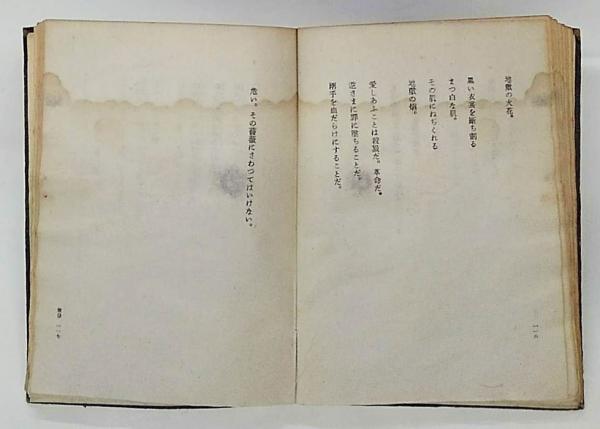 地獄の火花。
黒い衣裳を断ち割る
まつ白な肌。
その肌にねぢくれる
地獄の焔。
愛しあふことは殺戮だ。革命だ。
逆さまに罪に墮ちることだ。
兩手を血だらけにすることだ。
危い。その薔薇にさわつてはいけない。